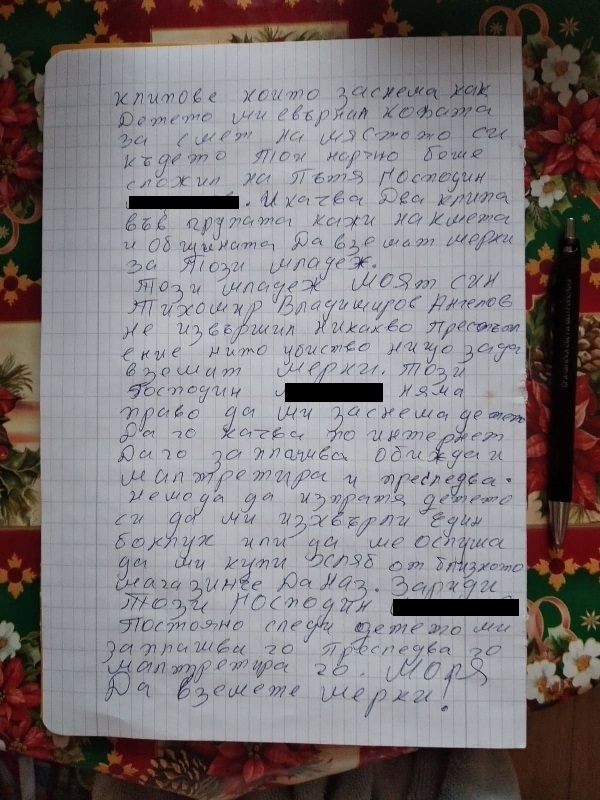 клипове който заснема как
Детето ми евърнал кофата
за смет на мястото си
където той нарчно беше
сложил на Пътя Господин
. И качва Два клипа
във групата кажи на кмета
и Общината Да вземат мерки
за този младеж.
Този младеж моят син
Тихомир Владимиров Ангелов
не извършил никакво престъпл
ение нито убиство нищо зада
вземат мерки. този
Господин няма
право да ми заснема детето
Да го качва по интернет
Даго заплашва обижда и
малтретира и преследва.
Немода да изпратя детето
си да ми изхвърли Един
боклук или да ме ослуша
да ми купи Хляб от близкото
магазинче Да Наз. Заради
този Господин
Постояно следи детето ми
заплашва го Преследва го
малтретира го. Моря
Да вземете мерки!